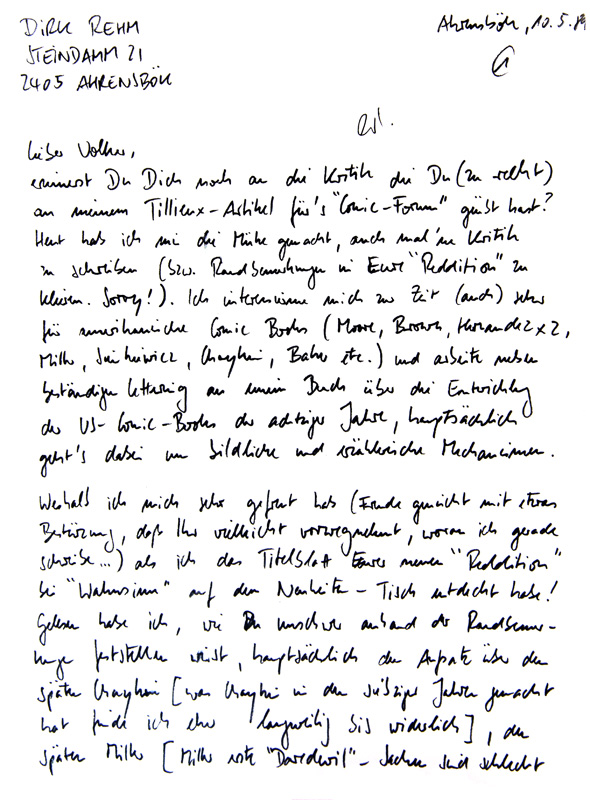 DIRK REHM
STEINDAMM 21
2405 AHRENSBÖK
Ahrensbök, 10.5.89
1
Lieber Volker,
erinnerst Du Dich noch an die Kritik die Du (zu recht)
an meinem Tillieux-Artikel für's "Comic-Forum" geübt hast?
Heut hab ich mir die Mühe gemacht, auch mal 'ne Kritik
zu schreiben (bzw. Randbemerkungen in Eure "Reddition" zu
kleinen. Sorry!). Ich interessiere mich zur Zeit (auch) sehr
für amerikanische Comic Books (Moore, Brown, Hernandez x 2,
Miller, Sienkiewicz, Chaykin, Baker etc.) und arbeite neben
beständigem Lettering an einem Buch über die Entwicklung
der US-Comic-Books der achtziger Jahre, hauptsächlich
geht's dabei um bildliche und erzählerische Mechanismen.
Weshalb ich mich sehr gefreut hab (Freude gemischt mit etwas
Bestürzung, daß Ihr vielleicht vorwegnehmt, woran ich gerade
schreibe...) als ich das Titelblatt Eurer neuen "Reddition"
bei "Wahnsinn" auf dem Neuheiten-Tisch entdeckt habe!
Gelesen habe ich, wie Du unschwer anhand der Randbemer-
kungen feststellen wirst, hauptsächlich den Aufsatz über den
späten Chaykin [was Chaykin in den siebziger Jahren gemacht
hat finde ich eher langweilig bis widerlich], den
späten Miller [Millers erste "Daredevil"-Sachen sind schlecht